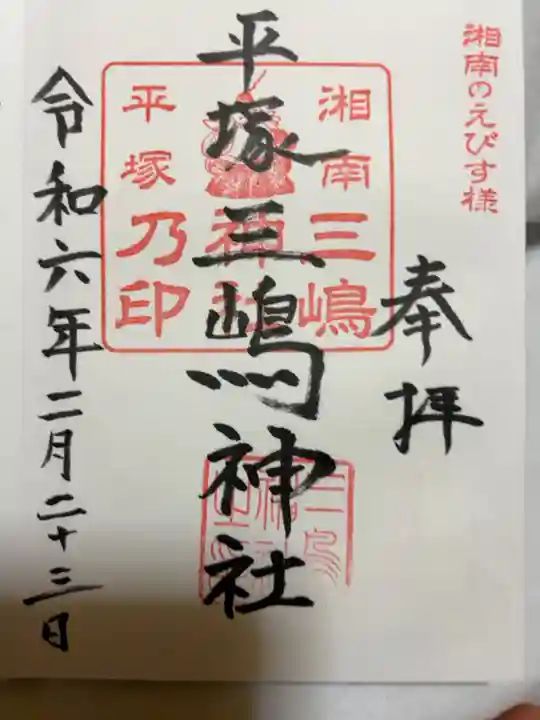 湘南のえびす様
奉拝
平塚三嶋神社
湘南三嶋
神社
平塚乃印
令和六年二月二十三日